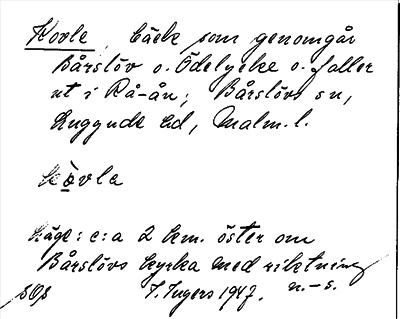 Kovle, bäck som genomgår
Bårslöv o. Ödelycke o. faller
ut i Rå-ån; Bårslövs sn,
Luggude hd, Malm. l.
kòvla
Läge: c:a 2 km. öster om
Bårslövs kyrka med riktning
n.-s.
I. Ingers 1947.